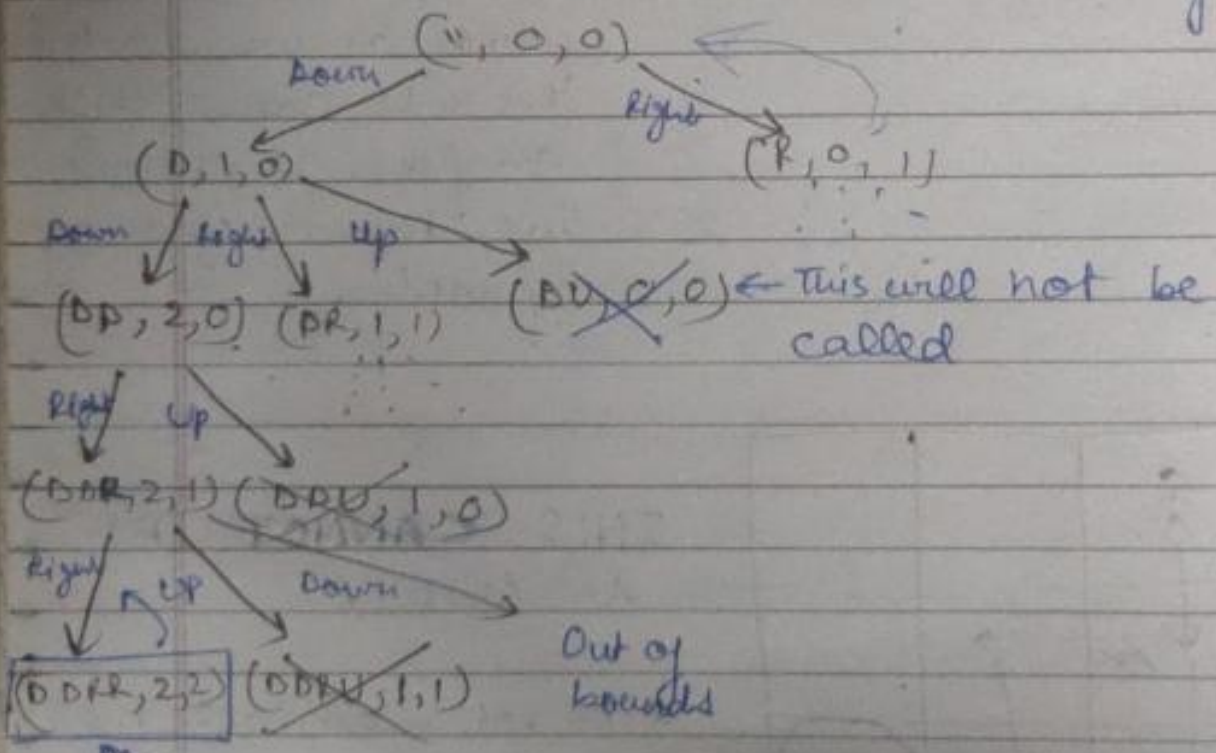 (", 0, 0)
Down
Right
(D, 1, 0)
(R, 0, 1)
Down Right Up
(DD, 2, 0) (DR, 1, 1) (DU, 0, 0) ← This will not be
called
Right Up
(DDR, 2, 1) (DDU, 1, 0)
Right UP Down
(DDRR, 2, 2) (DDRU, 1, 1) Out of
bounds